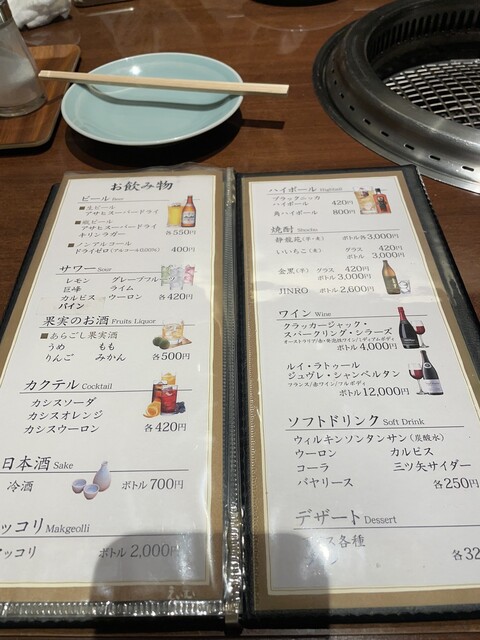 お飲み物
ビール Beer
■生ビール
アサヒスーパードライ
■瓶ビール
アサヒスーパードライ
キリンラガー
各550円
■ノンアルコール
ドライゼロ(アルコール0.00%) 400円
サワー Sour
レモン グレープフル
巨峰 ライム
カルピス ウーロン
パイン
各420円
果実のお酒 Fruits Liquor
■あらごし果実酒
うめ もも
りんご みかん 各500円
カクテル Cocktail
カシスソーダ
カシスオレンジ
カシスウーロン 各420円
日本酒 Sake
冷酒 ボトル 700円
ッコリ Makgeolli
ッコリ ボトル 2,000円
ハイボール Highball
ブラックニッカ
ハイボール 420円
角ハイボール 800円
焼酎 Shochu
ボトル各3,000円
いいちこ(麦) グラス 420円
ボトル 3,000円
金黒(芋) グラス 420円
ボトル3,000円
JINRO ボトル 2,600円
ワイン Wine
クラッカージャック・
スパークリング・シラーズ
オーストラリア/赤・発泡性ワイン/ミディアムボディ
ボトル 4,000円
ルイ・ラトゥール
ジュヴレ・シャンベルタン
フランス/赤ワイン/フルボディ
ボトル 12,000円
ソフトドリンク Soft Drink
ウィルキンソンタンサン(炭酸水)
ウーロン カルピス
コーラ 三ツ矢サイダー
バヤリース 各250円
デザート Dessert
ス各種
各32